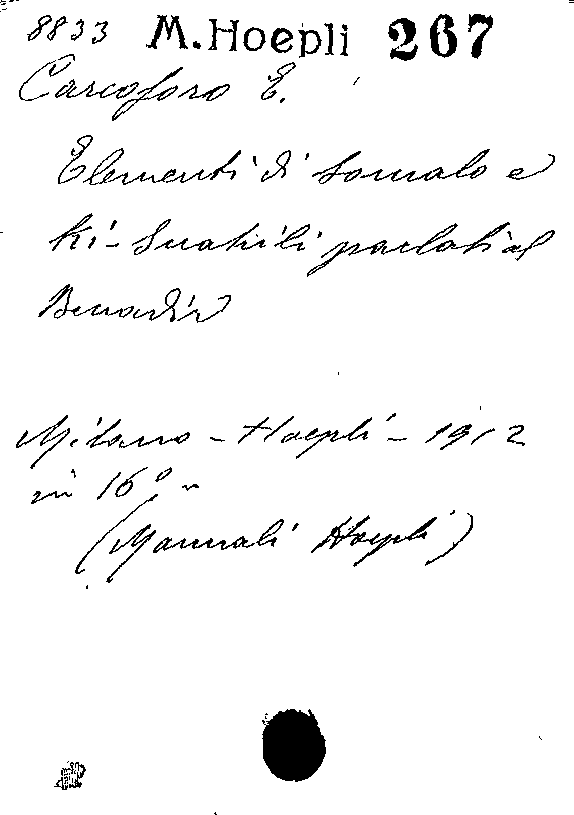 8833 M. Hoepli 267
Carcoforo E.
Elementi di somalo e
ki-suahili parlati al
Benadir
Milano - Hoepli - 1912
in 16°
(Manuali Hoepli)